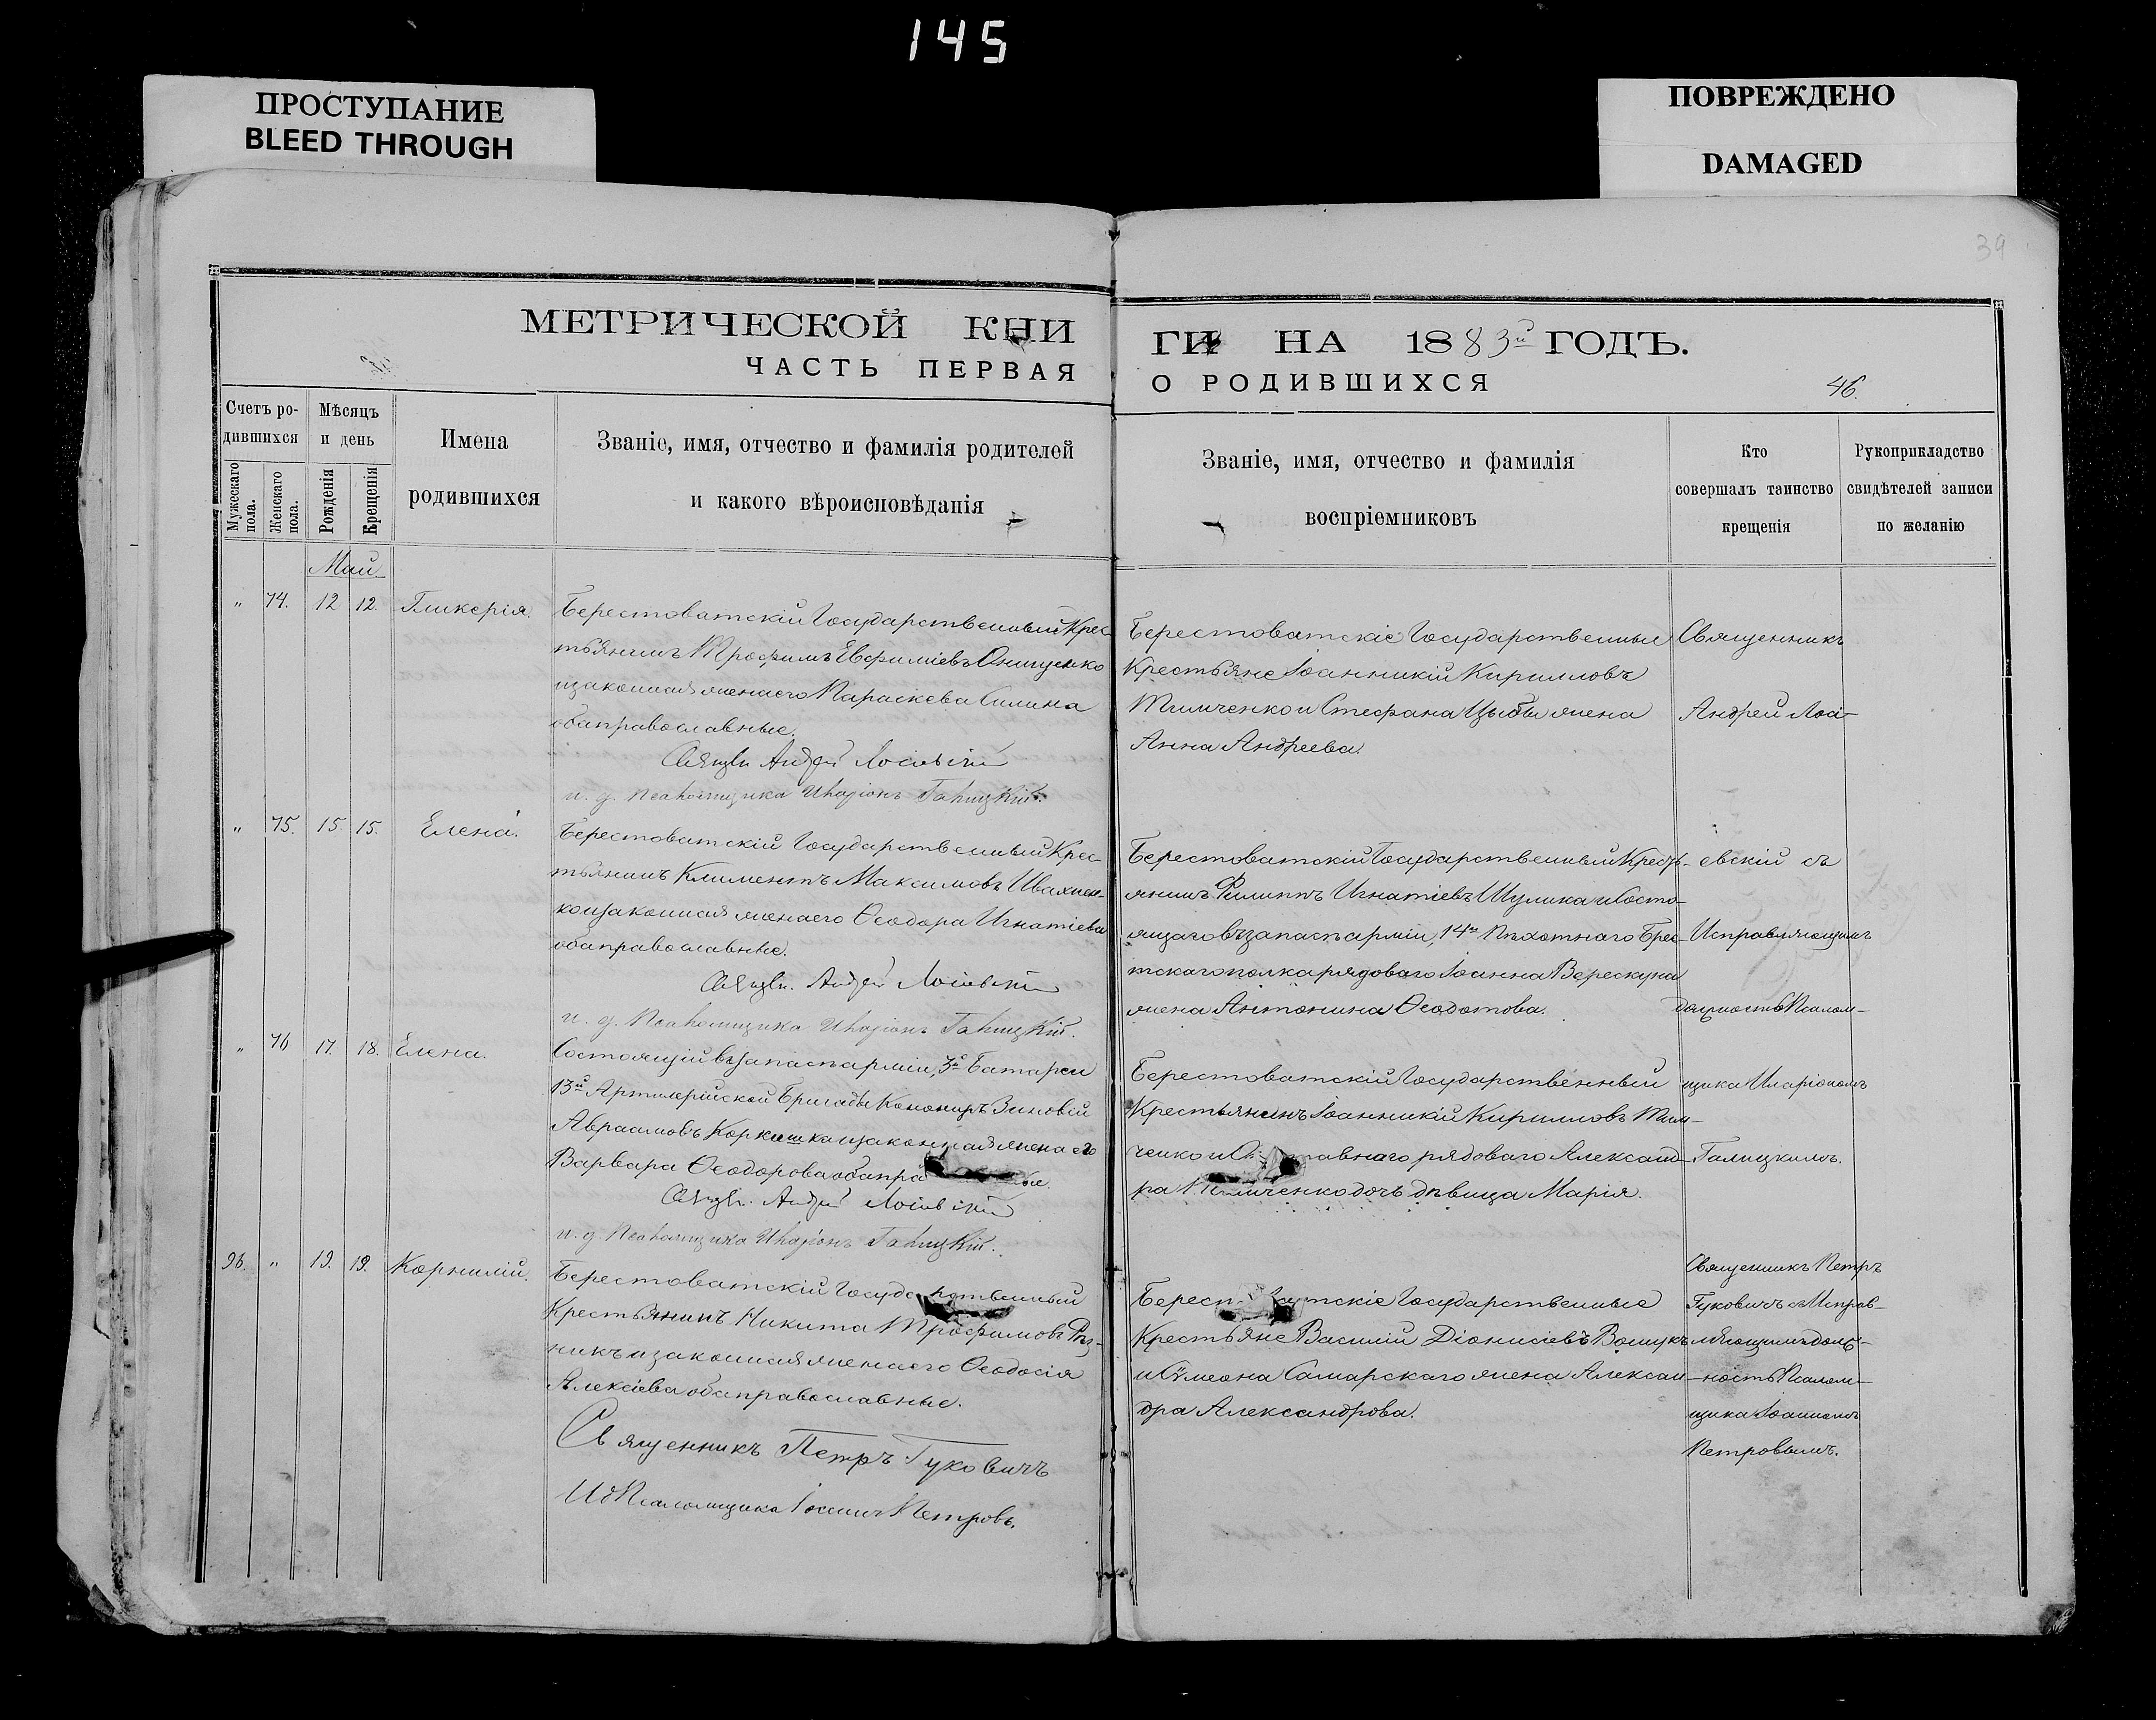 145
ПРОСТУПАНИЕ
BLEED THROUGH
ПОВРЕЖДЕНО
DAMAGED
39
МЕТРИЧЕСКОЙ КНИ
ЧАСТЬ ПЕРВАЯ
ГИ НА 1883й ГОДЪ.
О РОДИВШИХСЯ
46.
Счетъ ро-
дившихся
Мужескаго пола.
Женскаго пола.
Мѣсяцъ
и день
Рожденія
Крещенія
Имена
родившихся
Званіе, имя, отчество и фамилія родителей
и какого вѣроисповѣданія
Званіе, имя, отчество и фамилія
воспріемниковъ
Кто
совершалъ таинство
крещенія
Рукоприкладство
свидѣтелей записи
по желанію
Май
" 74. 12 12. Гликерія.
Берестоватскій Государственный Крес-
тьянинъ Трофимъ Евфиміевъ Онищенко
и законная жена его Параскева Силина
оба православные.
Священ. Андрей Лосіевскій
и. д. Псаломщика Иларіонъ Галицкій.
Берестоватскіе Государственные
Крестьяне Іоанникій Кирилловъ
Тимченко и Стефана Цыбы жена
Анна Андреева.
Священникъ
Андрей Лосі-
" 75. 15. 15. Елена.
Берестоватскій Государственный Крес-
тьянинъ Климентъ Максимовъ Ивахнен-
ко и законная жена его Ѳеодора Игнатіева
оба православные.
Священ. Андрей Лосіевскій
и. д. Псаломщика Иларіонъ Галицкій.
Берестоватскій Государственный Кресть-
янинъ Филиппъ Игнатіевъ Шулика и Состо-
ящаго въ запасѣ арміи, 14й Пѣхотнаго
тскаго полка рядоваго Іоанна Верескуна
жена Антонина Ѳеодотова.
евскій съ
Исправляющимъ
должность Псалом-
" 76 17. 18. Елена.
Состоящій въ запасѣ арміи, 3й Батареи
13й Артилерійской Бригады Канониръ Зиновій
Авраамовъ Коркишка и законная жена его
Варвара Ѳеодорова оба пра ые.
Священ. Андрей Лосіевскій
и. д. Псаломщика Иларіонъ Галицкій.
Берестоватскій Государственный
Крестьянинъ Іоанникій Кирилловъ Тим-
ченко и авнаго рядоваго Александ-
ра Тимченко дочь дѣвица Марія.
щика Иларіономъ
Галицкимъ.
96. " 19. 19. Корнилій.
Берестоватскій Государственный
Крестьянинъ Никита Трофимовъ Рѣз-
никъ и законная жена его Ѳеодосія
Алексіева оба православные.
Священникъ Петръ Гуковичъ
И д Псаломщика Іоаннъ Петровъ.
Берестоватскіе Государственные
Крестьяне Василій Діонисіевъ
и Сѵмеона Самарскаго жена Алексан-
дра Александрова.
Священникъ Петръ
Гуковичъ съ Исправ-
ляющимъ долж-
ность Псалом-
щика Іоанномъ
Петровымъ.